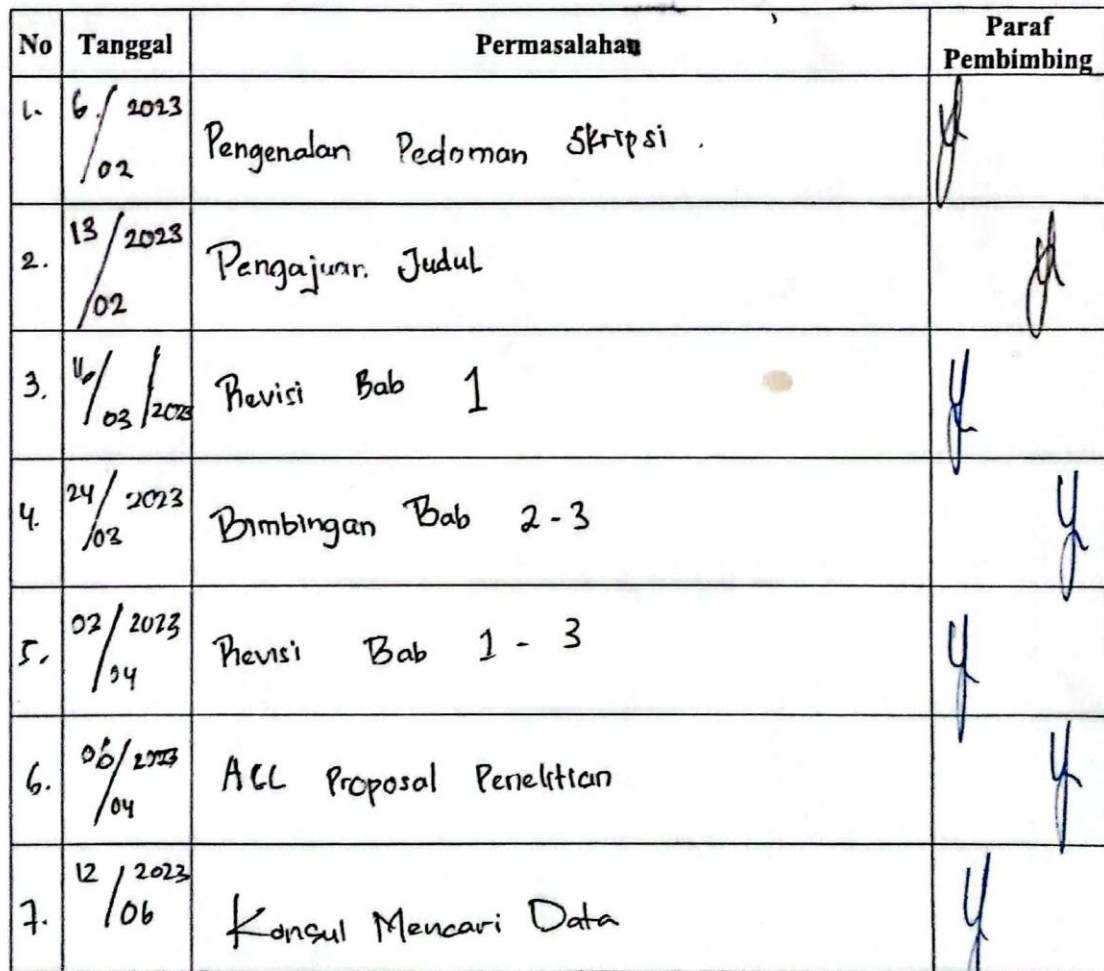 No Tanggal Permasalahan Paraf Pembimbing
1. 6/02 2023 Pengenalan Pedoman Skripsi.
2. 13/02 2023 Pengajuan Judul
3. /03/2023 Revisi Bab 1
4. 24/03 2023 Bimbingan Bab 2-3
5. /04 2023 Revisi Bab 1 - 3
6. 06/04 2023 ACC Proposal Penelitian
7. 12/06 2023 Konsul Mencari Data